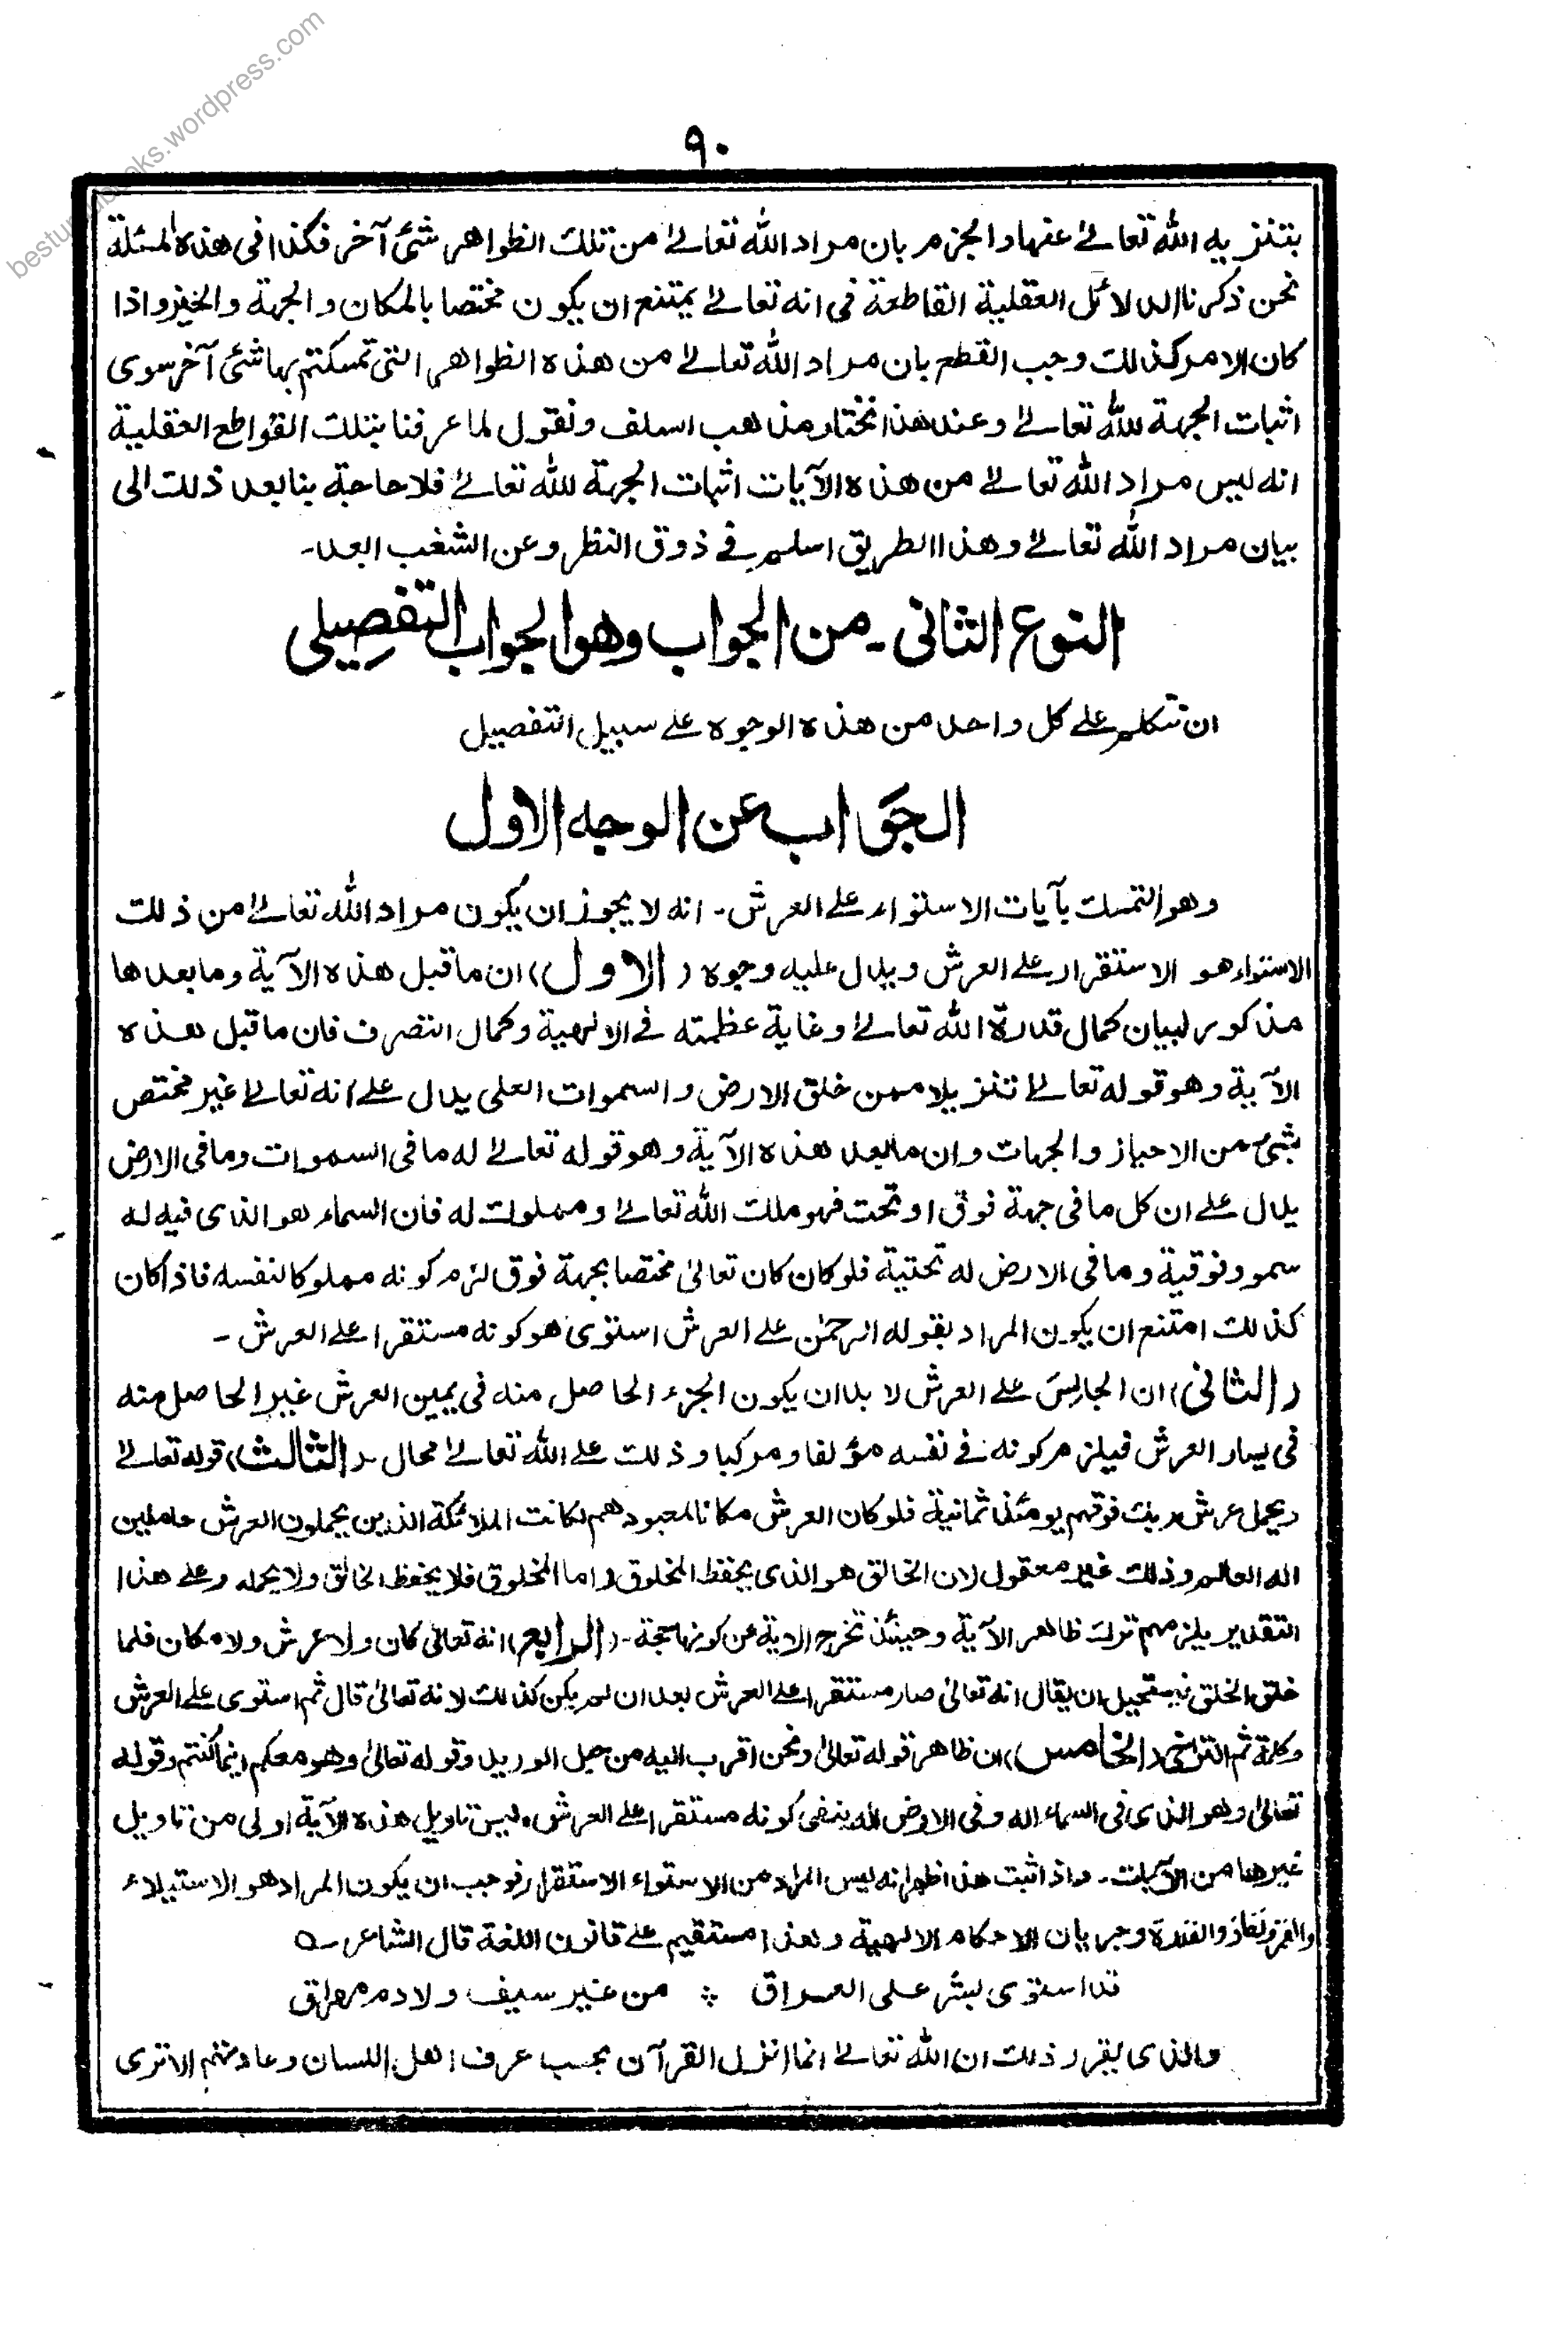 besturdubooks.wordpress.com
۹۰
بتنزیه الله تعالیٰ عنها والجزم بان مراد الله تعالیٰ من تلک الظواهر شئ آخر فکذا فی هذه المسئلة
نحن ذکرنا الدلائل العقلیة القاطعة فی انه تعالیٰ یمتنع ان یکون مختصا بالمکان والجهة والخیز واذا
کان الامر کذلک وجب القطع بان مراد الله تعالیٰ من هذه الظواهر التی تمسکتم بها شئ آخر سوی
اثبات الجهة لله تعالیٰ وعند هذا نختار مذهب السلف ونقول لما عرفنا بتلک القواطع العقلیة
انه لیس مراد الله تعالیٰ من هذه الآیات اثبات الجهة لله تعالیٰ فلا حاجة بنا بعد ذلک الی
بیان مراد الله تعالیٰ وهذا الطریق اسلم فی ذوق النظر وعن الشغب ابعد۔
النوع الثانی۔ من الجواب وهو الجواب التفصیلی
ان نتکلم علی کل واحد من هذه الوجوه علی سبیل التفصیل
الجَوَاب عن الوجه الاول
وهو التمسک بآیات الاستواء علی العرش۔ انه لا یجوز ان یکون مراد الله تعالیٰ من ذلک
الاستواء هو الاستقرار علی العرش ویدل علیه وجوه (الاول) ان ما قبل هذه الآیة وما بعدها
مذکور لبیان کمال قدرة الله تعالیٰ وغایة عظمته فی الالهیة وکمال التصرف فان ما قبل هذه
الآیة وهو قوله تعالیٰ تنزیلا ممن خلق الارض والسموات العلی یدل علی انه تعالیٰ غیر مختص
بشئ من الاحیاز والجهات وان ما بعد هذه الآیة وهو قوله تعالیٰ له ما فی السموات وما فی الارض
یدل علی ان کل ما فی جهة فوق او تحت فهو ملک الله تعالیٰ ومملوک له فان السماء هو الذی فیه له
سمو وفوقیة وما فی الارض له تحتیة فلو کان کان تعالیٰ مختصا بجهة فوق لزم کونه مملوکا لنفسه فاذا کان
کذلک امتنع ان یکون المراد بقوله الرحمٰن علی العرش استوی هو کونه مستقرا علی العرش۔
(الثانی) ان الجالِسَ علی العرش لا بد ان یکون الجزء الحاصل منه فی یمین العرش غیر الحاصل منه
فی یسار العرش فیلزم کونه فی نفسه مؤلفا ومرکبا وذلک علی الله تعالیٰ محال۔ (الثالث) قوله تعالیٰ
ویحمل عرش ربک فوقهم یومئذ ثمانیة فلو کان العرش مکانا لمعبودهم لکانت الملائکة الذین یحملون العرش حاملین
اله العالم وذلک غیر معقول لان الخالق هو الذی یحفظ المخلوق واما المخلوق فلا یحفظ الخالق ولا یحمله وعلی هذا
التقدیر یلزمهم ترک ظاهر الآیة وحینئذ تخرج الایة عن کونها حجة۔ (الرابع) انه تعالیٰ کان ولا عرش ولا مکان فلما
خلق الخلق فیستحیل ان یقال انه تعالیٰ صار مستقرا علی العرش بعد ان لم یکن کذلک لانه تعالیٰ قال ثم استوی علی العرش
وکلمة ثم التراخی (الخامس) ان ظاهر قوله تعالیٰ ونحن اقرب الیه من حبل الورید وقوله تعالیٰ وهو معکم اینما کنتم وقوله
تعالیٰ وهو الذی فی السماء اله وفی الارض اله ینفی کونه مستقرا علی العرش ولیس تاویل هذه الآیة اولی من تاویل
غیرها من الآیات۔ واذا ثبت هذا ظهر انه لیس المراد من الاستواء الاستقرار فوجب ان یکون المراد هو الاستیلاء
والقهر ونفاذ والقدرة وجریان الاحکام الالهیة وهذا مستقیم علی قانون اللغة قال الشاعر ؎
قد استوی بشر علی العراق ؞ من غیر سیف ولا دم مهراق
والذی یقرر ذلک ان الله تعالیٰ انما انزل القرآن بحسب عرف اهل اللسان وعادتهم الا تری